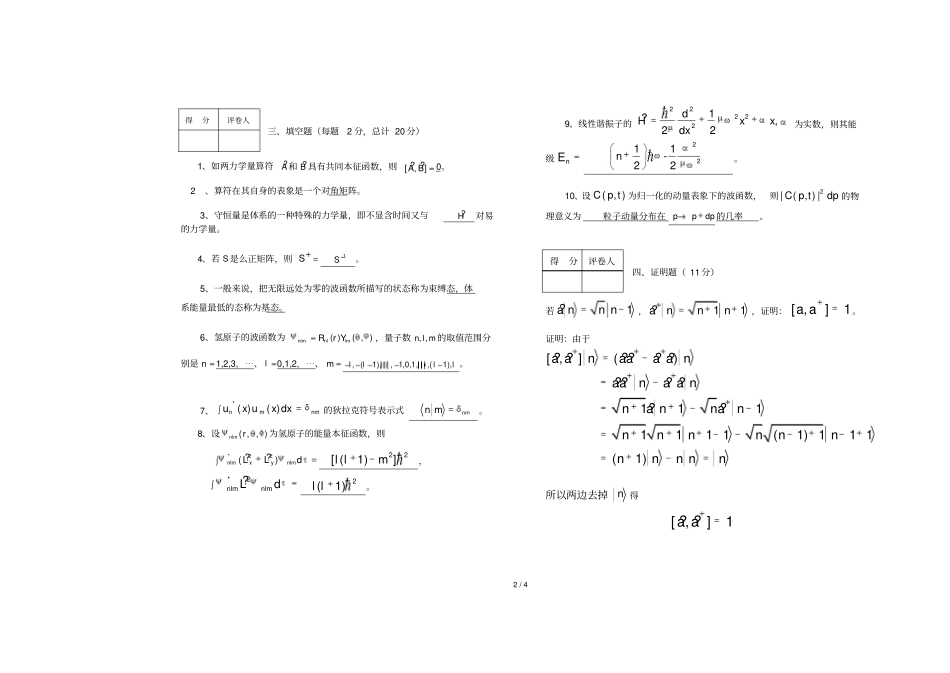 得 分 评卷人
三、填空题（每题 2 分，总计 20 分）
1、如两力学量算符 Â 和 B̂ 具有共同本征函数，则 [Â, B̂] = 0。
2 、算符在其自身的表象是一个对角矩阵。
3、守恒量是体系的一种特殊的力学量，即不显含时间又与 Ĥ 对易
的力学量。
4、若 S 是么正矩阵，则 S⁺ = S⁻¹ 。
5、一般来说，把无限远处为零的波函数所描写的状态称为束缚态，体
系能量最低的态称为基态。
6、氢原子的波函数为 ψnlm = Rnl(r)Ylm(θ,φ) ，量子数 n,l,m 的取值范围分
别是 n = 1,2,3, ⋯、 l = 0,1,2, ⋯、 m = −l, −(l−1), , −1,0,1, ,(l−1),l 。
7、 ∫un*(x)um(x)dx = δnm 的狄拉克符号表示式 ⟨n|m⟩ = δnm 。
8、设 ψnlm(r,θ,φ) 为氢原子的能量本征函数，则
∫ψ*nlm(L̂²x + L̂²y)ψnlm dτ = [l(l+1) − m²]ħ² ，
∫ψ*nlm L̂² ψnlm dτ = l(l+1)ħ² 。
9、线性谐振子的 Ĥ = ħ²/2μ d²/dx² + 1/2 μω²x² + αx, α 为实数，则其能
级 En = (n + 1/2)ħω - 1/2 α²/μω² 。
10、设 C(p,t) 为归一化的动量表象下的波函数， 则 |C(p,t)|² dp 的物
理意义为 粒子动量分布在 p→ p+dp 的几率 。
得 分 评卷人
四、证明题（ 11 分）
若 â|n⟩ = √n|n−1⟩ ，â⁺|n⟩ = √(n+1)|n+1⟩ ，证明：[a,a⁺] = 1 。
证明：由于
[â,â⁺]|n⟩ = (ââ⁺ − â⁺â)|n⟩
= ââ⁺|n⟩ − â⁺â|n⟩
= √(n+1)â|n+1⟩ − √n â⁺|n−1⟩
= √(n+1)√(n+1)|n+1−1⟩ − √n√((n−1)+1)|n−1+1⟩
= (n+1)|n⟩ − n|n⟩ = |n⟩
所以两边去掉 |n⟩ 得
[â,â⁺] = 1
2 / 4